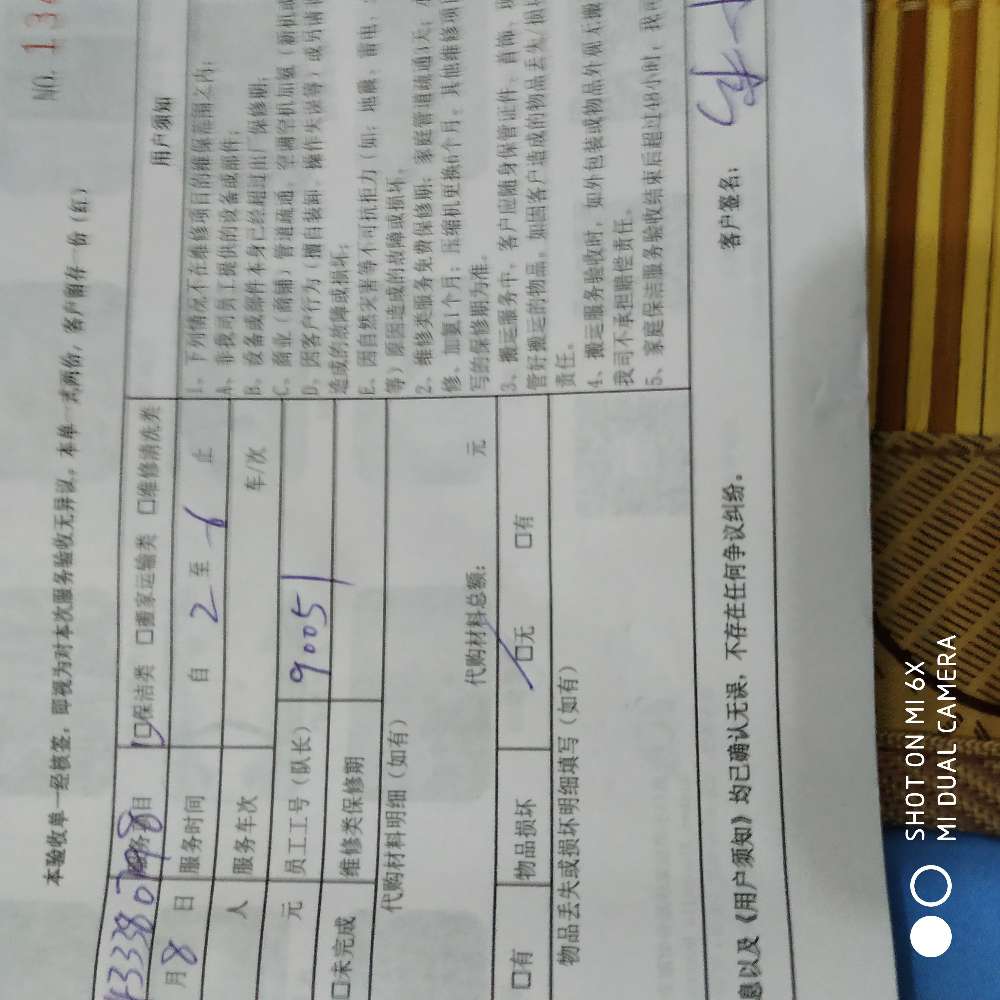 NO. 134
本验收单一经核签，即视为对本次服务验收无异议。本单一式两份，客户留存一份（红）
4333807998
服务项目
保洁类 □搬家运输类 □维修清洗类
用户须知
月8日
服务时间
自 2 至 6 止
人
服务车次
车/次
元
员工工号（队长）
90051
□未完成
维修类保修期
代购材料明细（如有）
代购材料总额： 元
□有
物品损坏
□无 □有
物品丢失或损坏明细填写（如有）
1、下列情况不在维修项目的维保范围之内：
A、非我司员工提供的设备或部件；
B、设备或部件本身已经超过出厂保修期；
C、商业（商铺）管道疏通、空调空机加氟（新机或
D、因客户行为（擅自装卸、操作失误等）或另请
造成的故障或损坏；
E、因自然灾害等不可抗拒力（如：地震、雷电、
等）原因造成的故障或损坏。
2、维修类服务免费保修期：家庭管道疏通1天；
修、加氟1个月；压缩机更换6个月。其他维修项
写的保修期为准。
3、搬运服务中，客户应随身保管证件、首饰、现
管好搬运的物品。如因客户造成的物品丢失/损坏
责任。
4、搬运服务验收时，如外包装或物品外观无
我司不承担赔偿责任。
5、家庭保洁服务验收结束后超过48小时，我司
息以及《用户须知》均已确认无误，不存在任何争议纠纷。
客户签名：
SHOT ON MI 6X
MI DUAL CAMERA